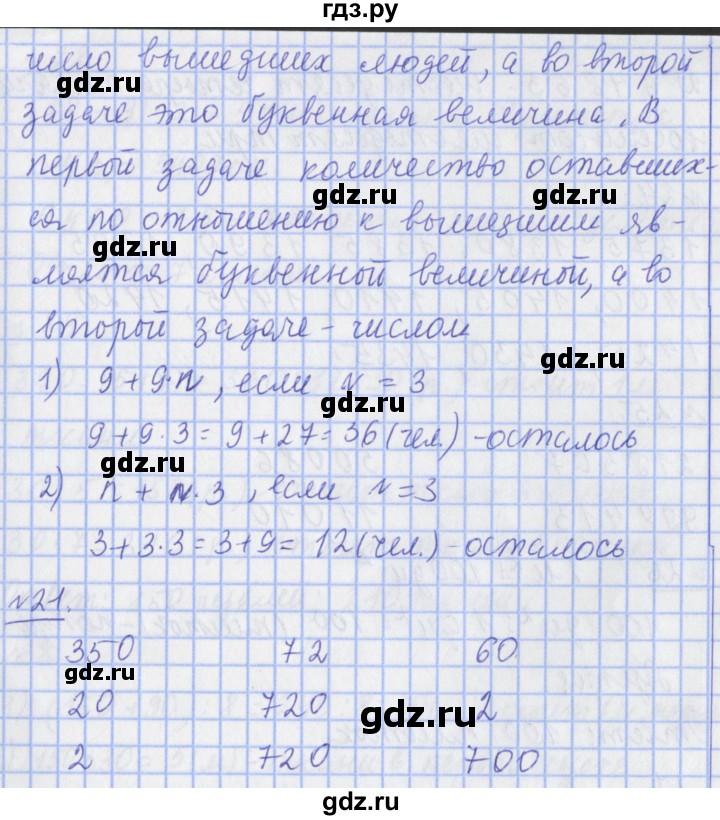 гдз.ру
число вышедших людей, а во второй
gdz.ru
gdz.ru
задаче это буквенная величина. В
первой задаче количество оставших-
gdz.ru
gdz.ru
ся по отношению к вышедшим яв-
gdz.ru
ляется буквенной величиной, а во
второй задаче - числом
gdz.ru
1) 9 + 9·n, если n = 3
gdz.ru
9 + 9·3 = 9 + 27 = 36 (чел.) - осталось
gdz.ru
2) n + n·3, если n = 3
gdz.ru
3 + 3·3 = 3 + 9 = 12 (чел.) - осталось
№21.
gdz.ru
350 72 60
gdz.ru
20 720 2
gdz.ru
2 720 700
gdz.ru